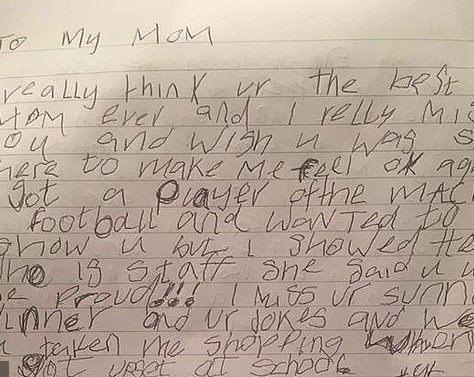 To My MoM
really think ur the best
MOM ever and I relly Mis
you and wish u was s
here to make Me feel ok aga
got a Player ofthe MAC
football and wanted to
show u but I showed
who is staff she said u w
be Proud!!! I Miss ur sunn
dinner and ur jokes and
u taken me shopping when
got upset at school